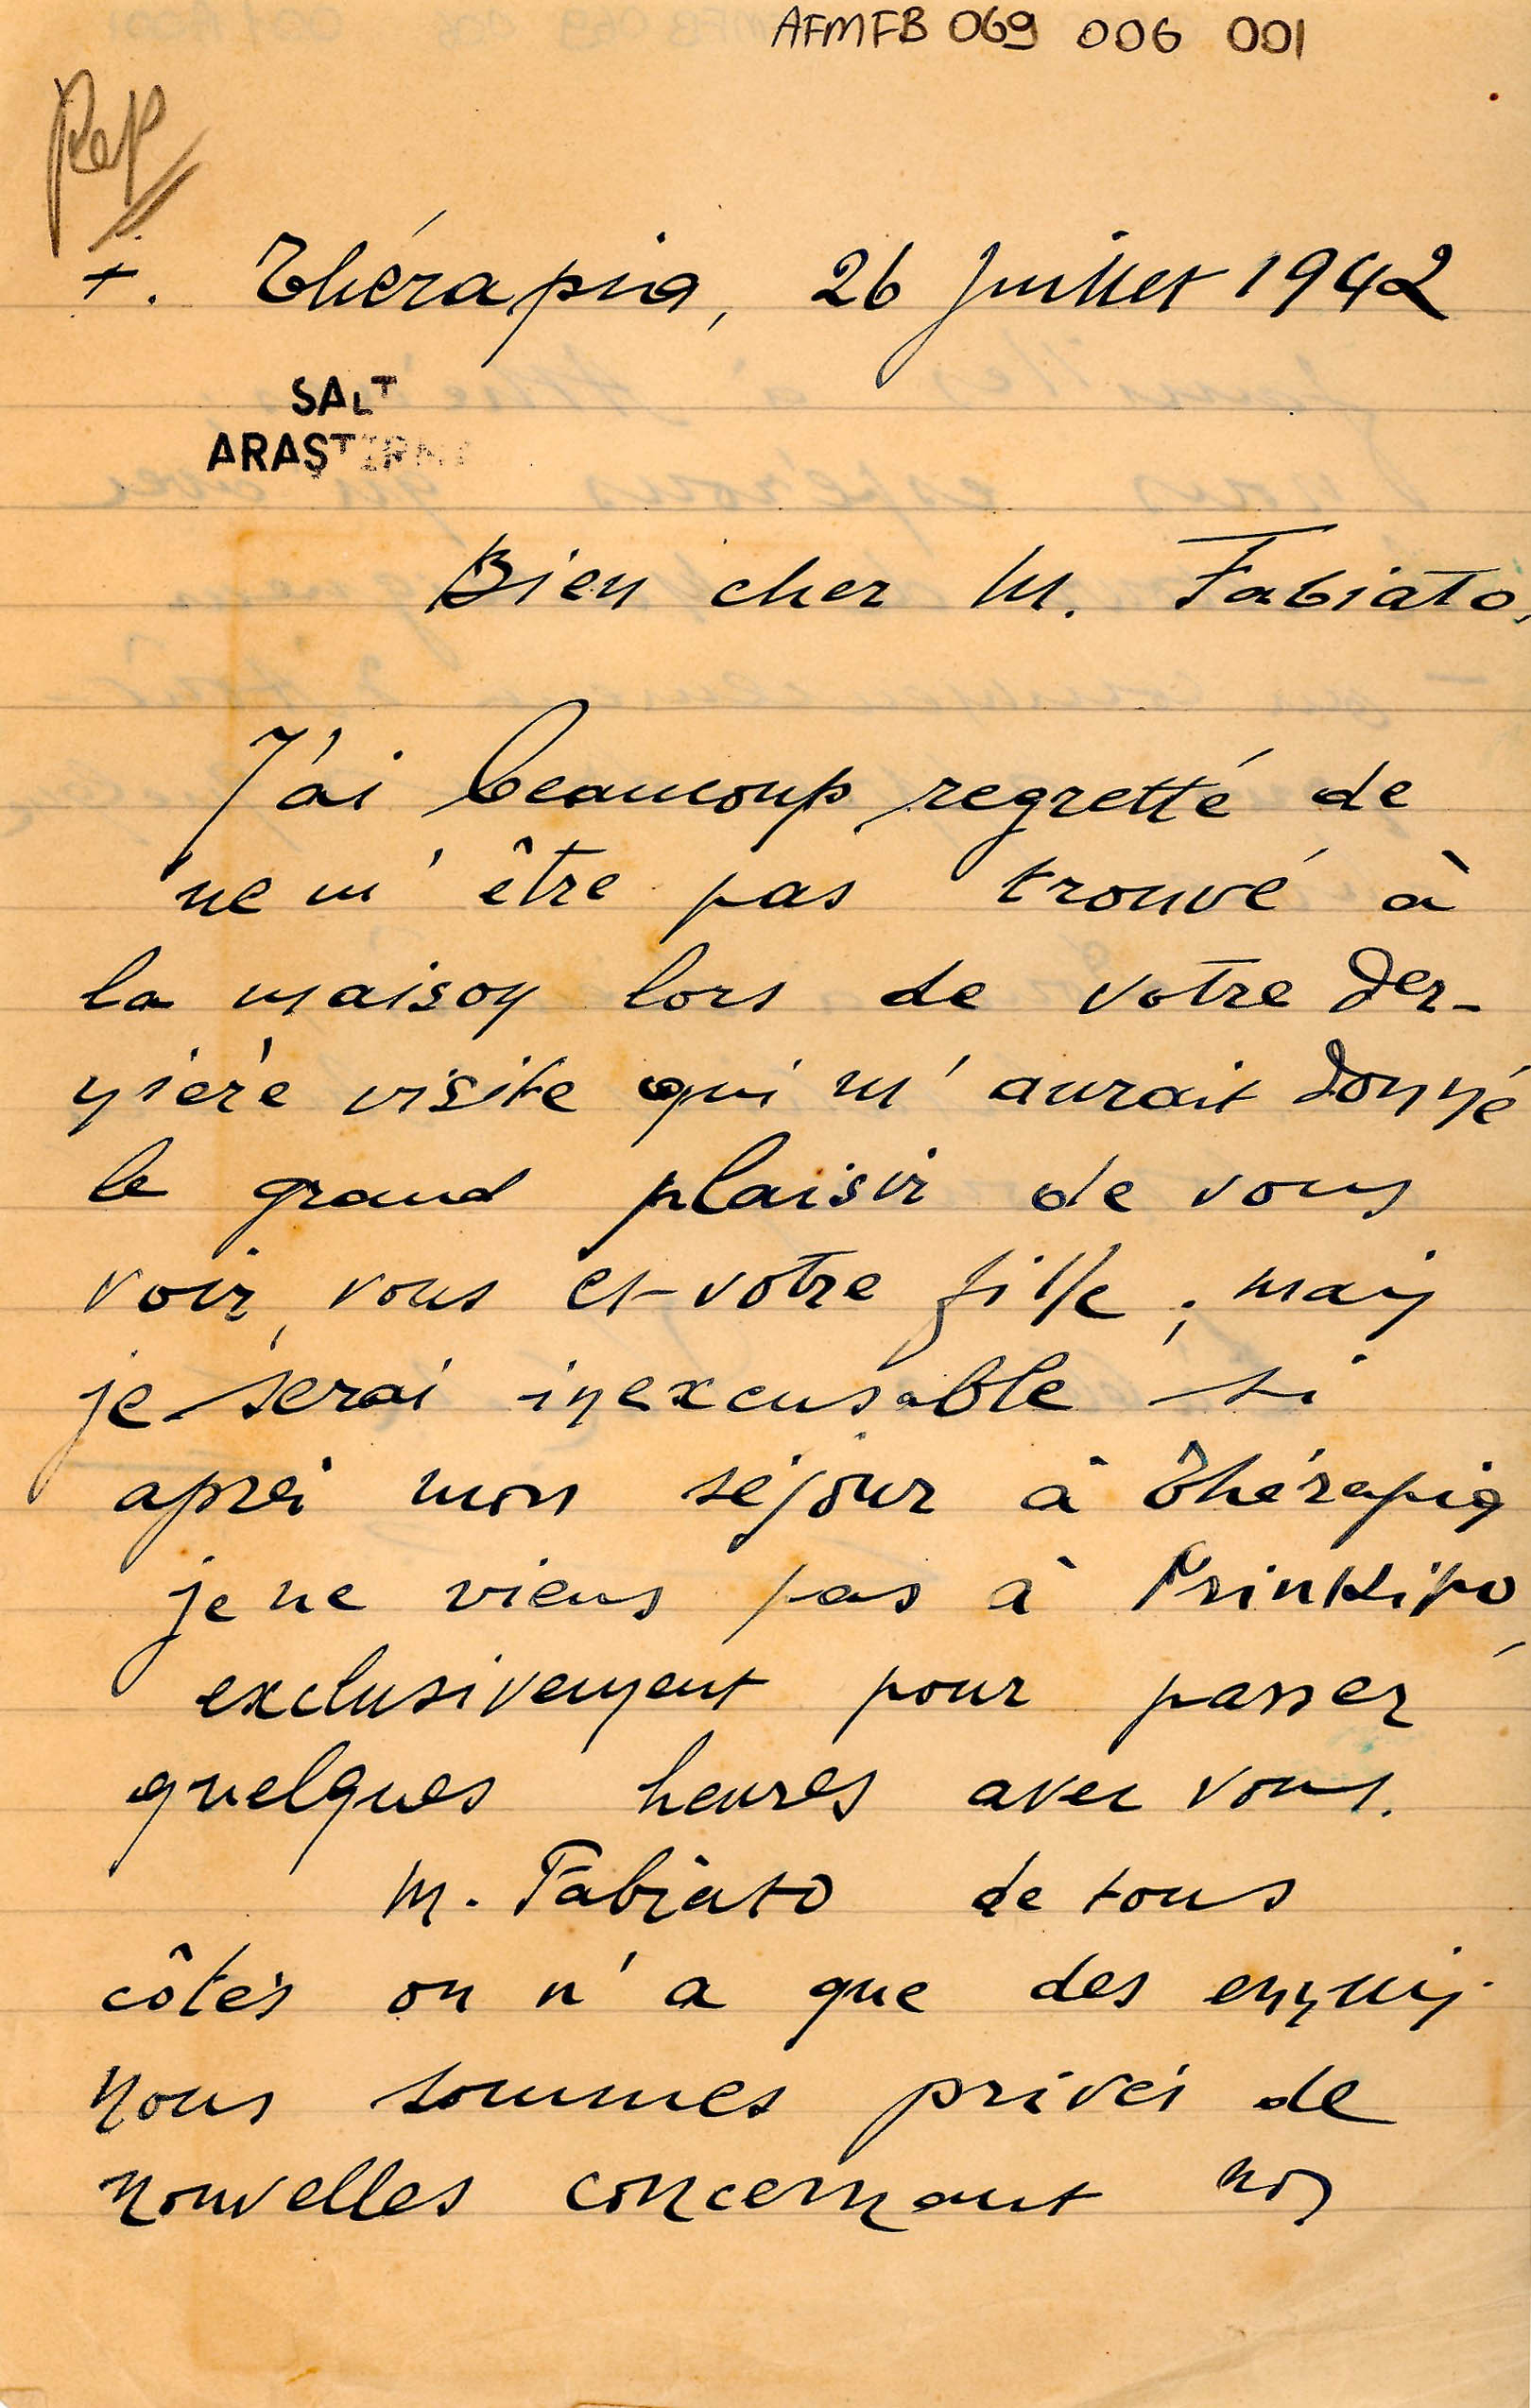 AFMFB 069 006 001
Rep
+. Thérapia, 26 Juillet 1942
SALT
ARAŞTIRMA
Bien cher M. Fabiato,
J'ai beaucoup regretté de
ne m'être pas trouvé à
la maison lors de votre der-
nière visite qui m'aurait donné
le grand plaisir de vous
voir, vous et votre fille ; mais
je serai inexcusable si
après mon séjour à Thérapia
je ne viens pas à Prinkipo,
exclusivement pour passer
quelques heures avec vous.
M. Fabiato de tous
côtés on n'a que des ennuis.
Nous sommes privés de
nouvelles concernant nos